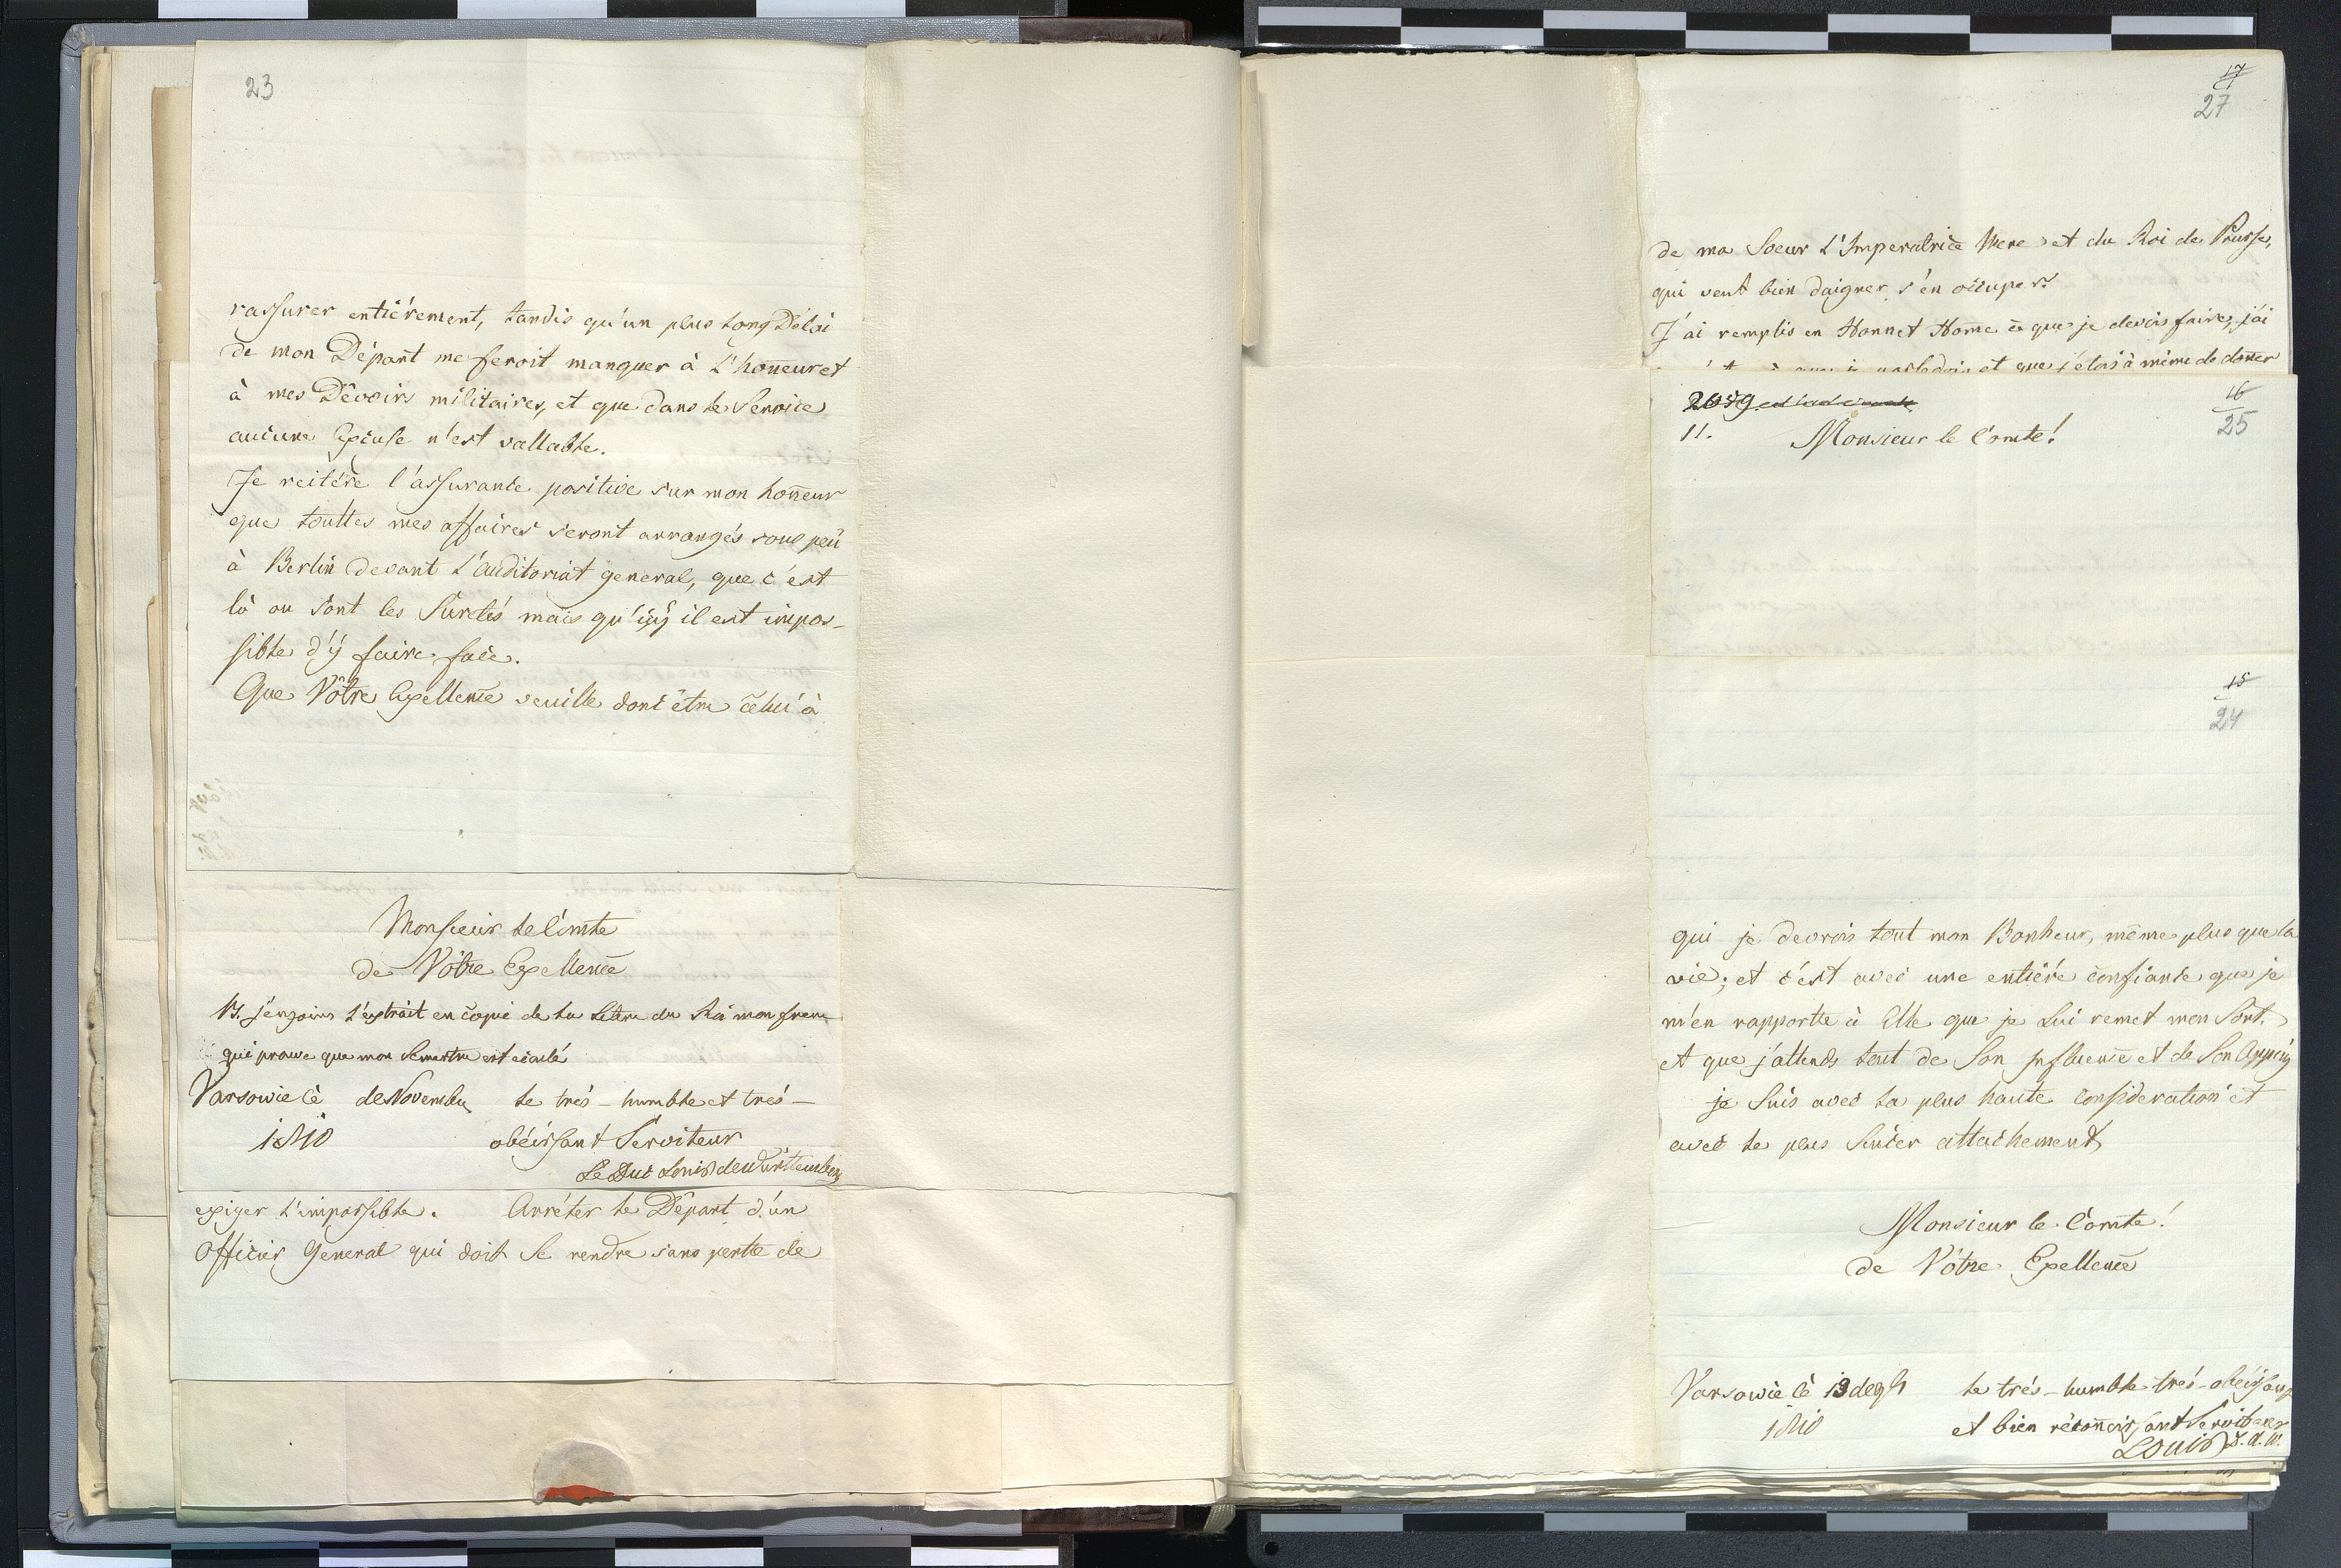 23
rassurer entiérement, tandis qu'un plus long Délai
de mon Départ me feroit manquer à L'hon̄eur et
à mes Dévoirs militaires, et que dans le Service
aucune Excuse n'est vallable.
Je reitére l'assurance positive sur mon hon̄eur
que touttes mes affaires seront arrangés sous peu
à Berlin devant L'auditoriat general, que c'est
là ou sont les Suretés mais qu'icy il est impos-
sible d'y faire face.
Que Vôtre Excellence veuille donc être celui à
Monsieur le Comte
de Vôtre Excellence
j'enjoins L'extrait en copie de la Lettre du Roi mon frere
qui prouve que mon Semestre est ecoulé
Varsovie cè de Novembre le trés-humble et trés-
1810 obéissant Serviteur
Le Duc Louis de Württemberg
exiger L'impossible. Arréter le Départ d'un
Officier General qui doit Se rendre sans pertte de
17
27
de ma Soeur L'Imperatrice Mere et du Roi de Prusse,
qui veut bien daigner s'en occuper.
J'ai remplis en Honnet Hom̄e ce que je devois faire, j'ai
et que j'etois à même de don̄er
2059
16
25
11.
Monsieur le Comte!
15
24
qui je devrois tout mon Bonheur, même plus que la
vie; et c'est avec une entiére confiance que je
m'en rapportte à Elle que je Lui remet mon Sort.
et que j'attends tout de Son Influence et de Son Appuy
je Suis avec la plus haute consideration et
avec le plus Sincer attachement
Monsieur le Comte!
de Vôtre Excellence
Varsovie cè 19 de 9br le trés-humble trés-obéissant
1810 et bien réconnoissant Serviteur
Louis D. d. W.